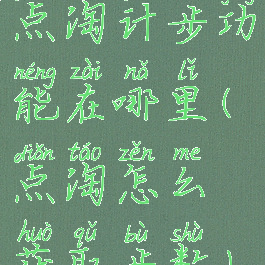 点淘计步功
néng zài nǎ lǐ
能在哪里(
diǎn táo zěn me
点淘怎么
huò qǔ bù shù
获取步数)